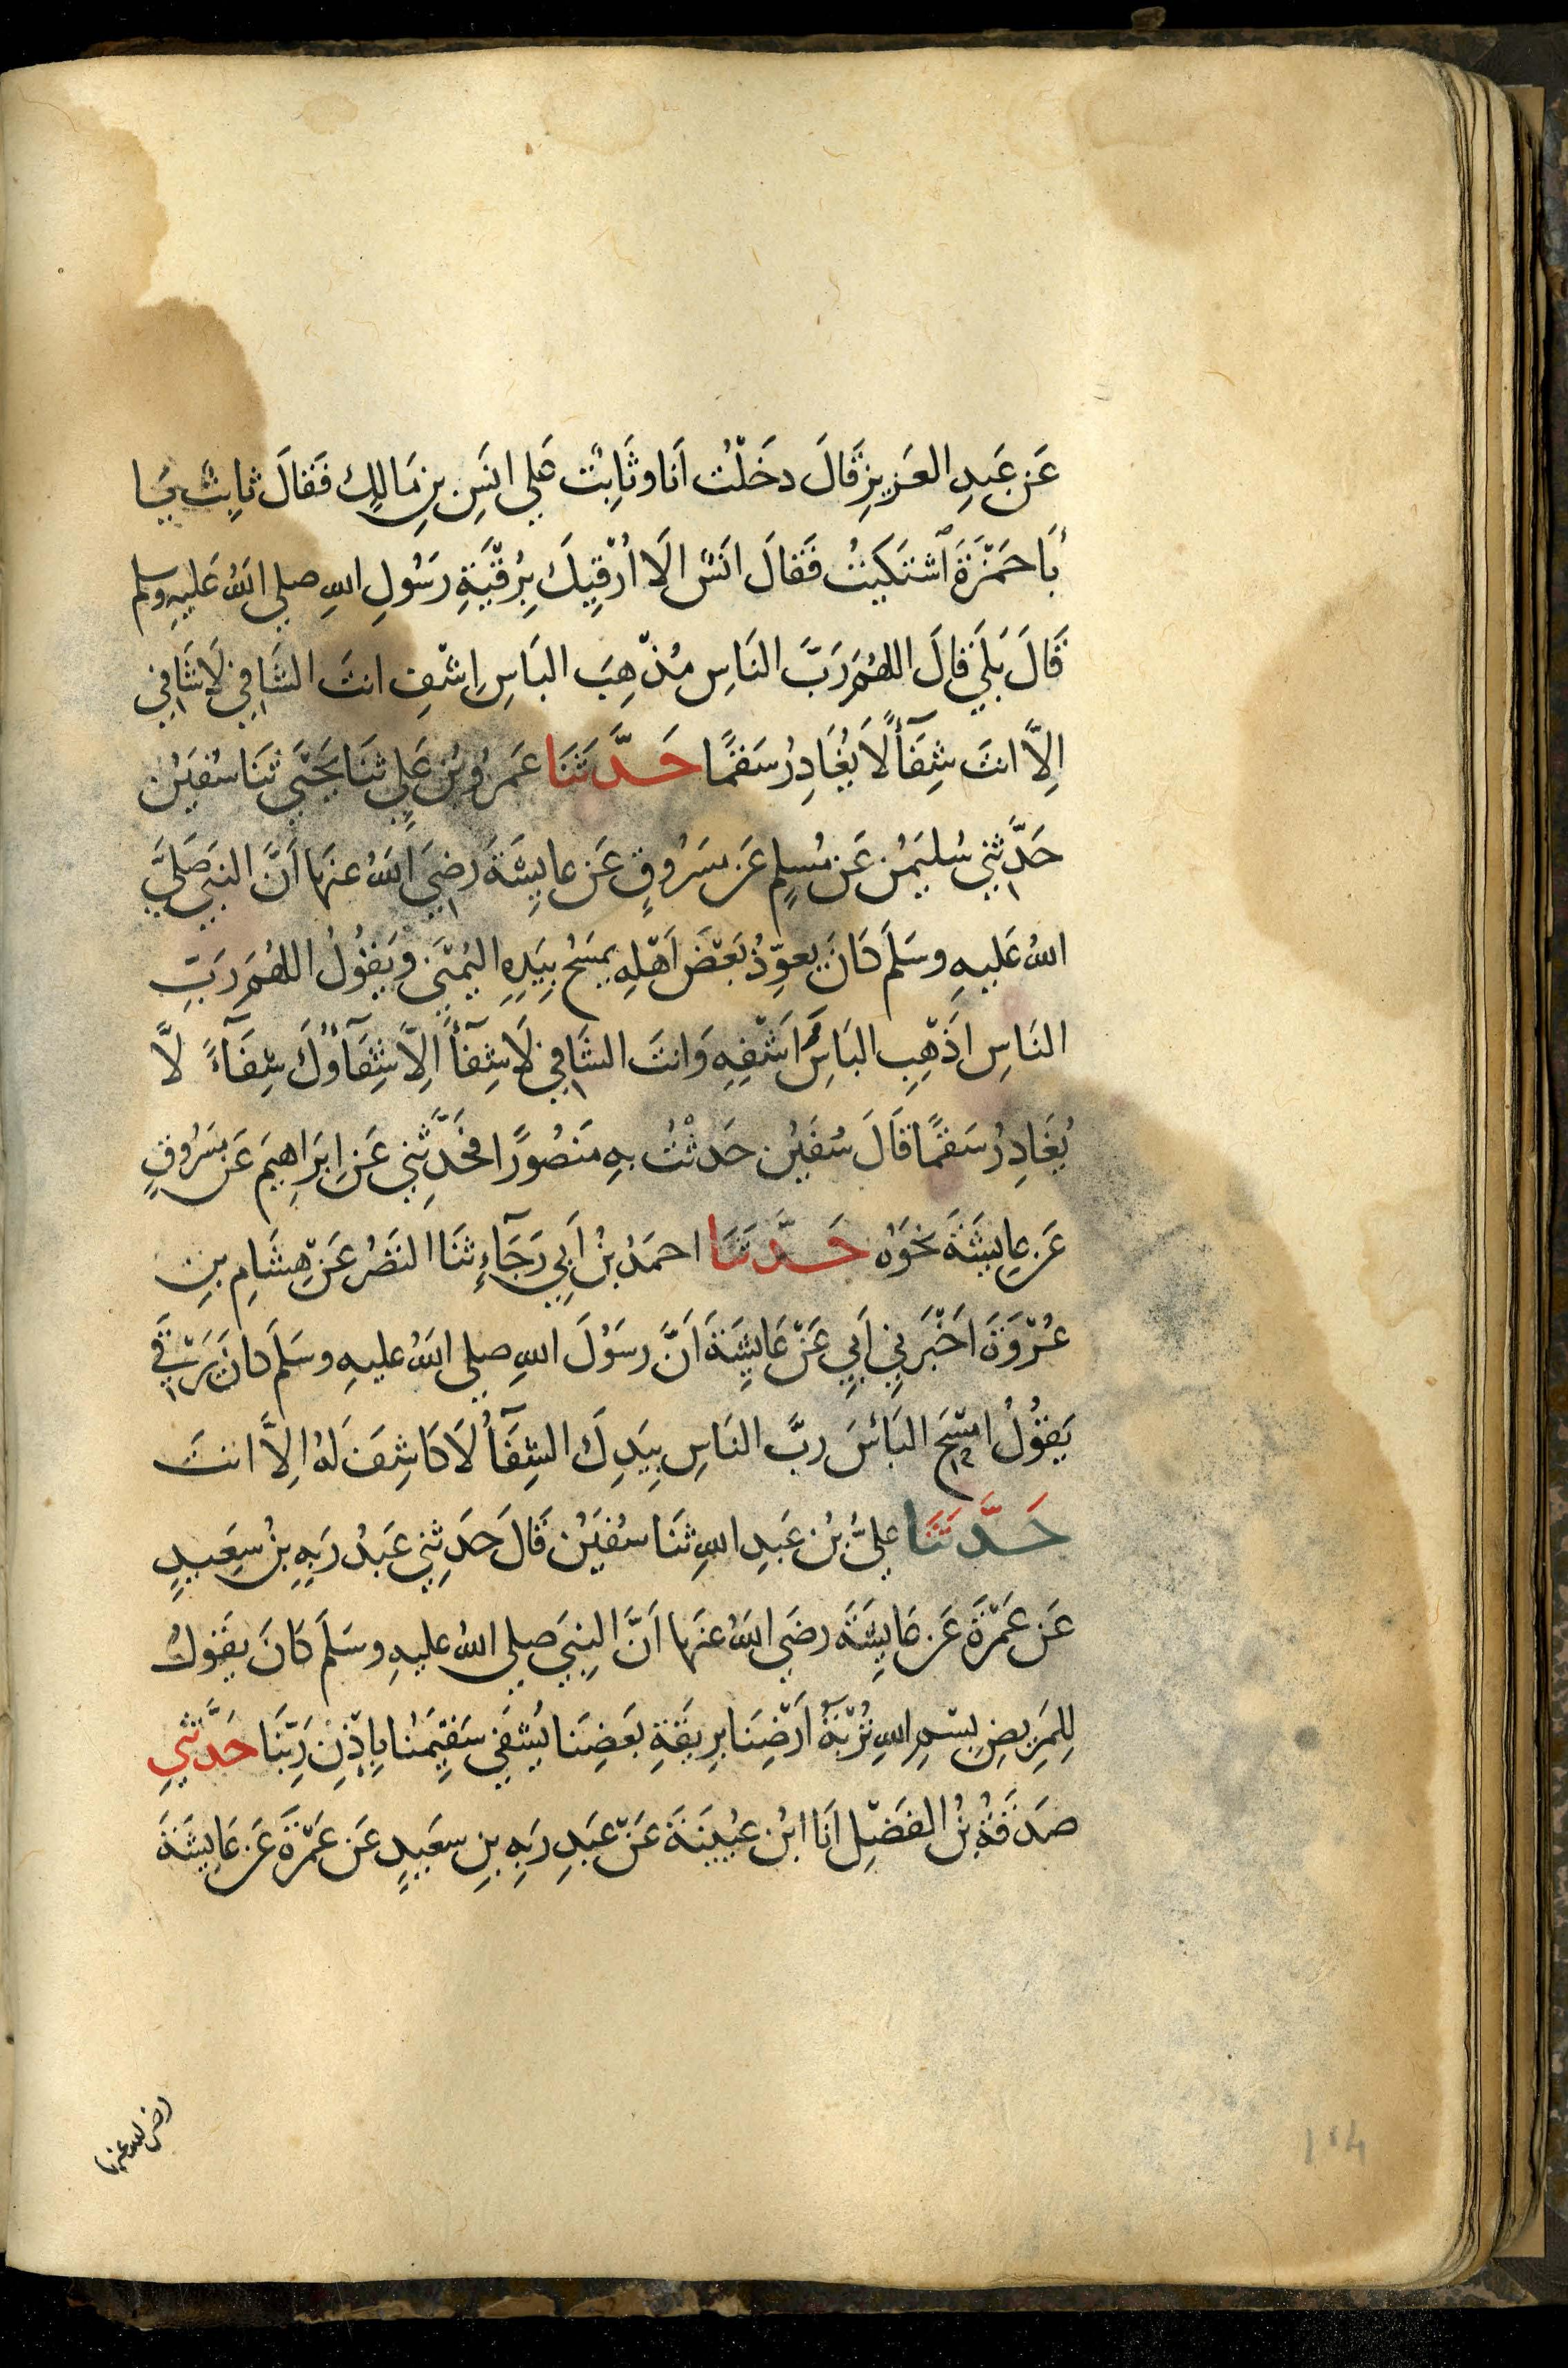 عَن عَبدِ العَزيزِ قَالَ دخَلْتُ اَنَا وثَابِتٌ عَلي انَسِ بنِ مَالِكٍ فَقالَ ثابِتٌ يَا
بَا حَمْزَةَ ٱشتَكَيتُ فَقَالَ انَسٌ الَا اُرْقِيكَ بِرُقْيَةِ رَسُولِ اللهِ صلي اللهُ عَليهِ وسلم
قَالَ بَلَي قَالَ اللهُمَ رَبَّ النَاسِ مُذْهِبَ البَاسِ اِشْفِ انتَ الشَافِي لَا شَافِي
اِلاَّ انتَ شِفَآءً لَا يُغَادِرُ سَقمًا حَدَّثَنَا عَمرُو بنُ عَلِي ثنَا يَحْيَي ثنَا سُفيٰن
حَدَّثنِي سُليمٰن عَن مُسلِمٍ عَن مسَرُوقٍ عَن عايِشَةَ رضِيَ اللهُ عنهَا اَنَّ النبِيَ صَلَيَّ
اللهُ عَليهِ وسَلَم كَانَ يعوِّذُ بَعْضَ اَهْلِهِ يمسَحُ بِيَدِهِ اليُمْنَي ويَقُولُ اللهُمَ رَبّ
النَاسِ اَذْهِبِ البَاسَ اَشْفِهِ وَانتَ الشَافِي لَا شِفآءَ اِلاَّ شِفَآؤُكَ شِفَآءً لاَّ
يُغَادِرُ سَقمًا قَالَ سُفيٰن حَدثْتُ بهِ مَنصُورًا فحَدَّثَنِي عَن اِبرَاهِيمَ عَن مسَرُوقٍ
عَن عايِشَةَ نحَوَه حَدَّثَنَا احمَدُ بنُ اَبِي رَجَآءٍ ثنَا النَضرُ عَنْ هِشَامِ بنِ
عُرْوَةَ اخَبَرَنِي اَبِي عَنْ عَايِشَةَ اَنَّ رسَوُلَ اللهِ صلي اللهُ عليهِ وسَلَم كانَ يَرْقي
يَقوُلُ امْسَحِ البَأسَ ربَّ النَاسِ بِيَدِكَ الشِفَآءُ لَا كَاشِفَ لَهُ اِلاَّ انتَ
حَدَّثَنَا عَليُّ بنُ عَبدِ اللهِ ثنَا سُفيٰن قَالَ حَدَثنِي عَبدُ رَبِهِ بنُ سعِيدٍ
عَن عَمْرَةَ عَن عَايِشَةَ رضَي اللهُ عنهَا اَنَّ النبِيَ صلي اللهُ عليهِ وسَلَم كَانَ يقوُلُ
لِلمَرِيضِ بسْمِ اللهِ تُرْبَةُ اَرْضِنَا بِريقَةِ بَعضِنَا يُشفَي سَقِيمُنَا بِاِذْنِ رَبّنَا حَدَّثَنِي
صَدَقَةُ بنُ الفَضْلِ اَنَا ابنُ عُيَينَةَ عَنْ عَبدِ رَبِهِ بنِ سعَيدٍ عَن عَمْرَةَ عَن عَايِشَةَ
رضي الله عنها